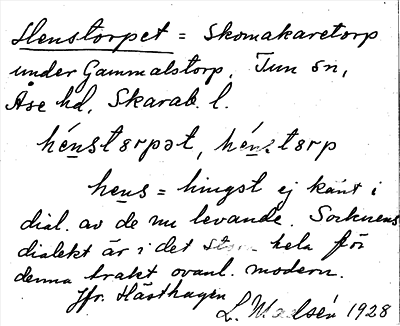 Henstorpet = Skomakaretorp
under Gammalstorp, Tun sn,
Åse hd, Skarab. l.
hénstɘrpət, hén.tɘrp
hens = hingst ej känt i
dial. av de nu levande. Socknens
dialekt är i det hela för
denna trakt ovanl. modern.
Jfr. Hästhagen
L. 1928